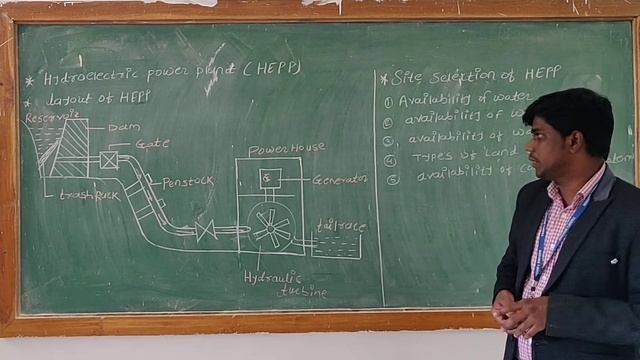 * Hydroelectric power plant (HEPP)
* layout of HEPP
Reservoir
Dam
Gate
trash rack
Penstock
Power House
G
Generator
tailrace
Hydraulic
turbine
* Site selection of HEPP
① Availability of water
② availability of
③ availability of
④ Types of Land
⑤ availability of